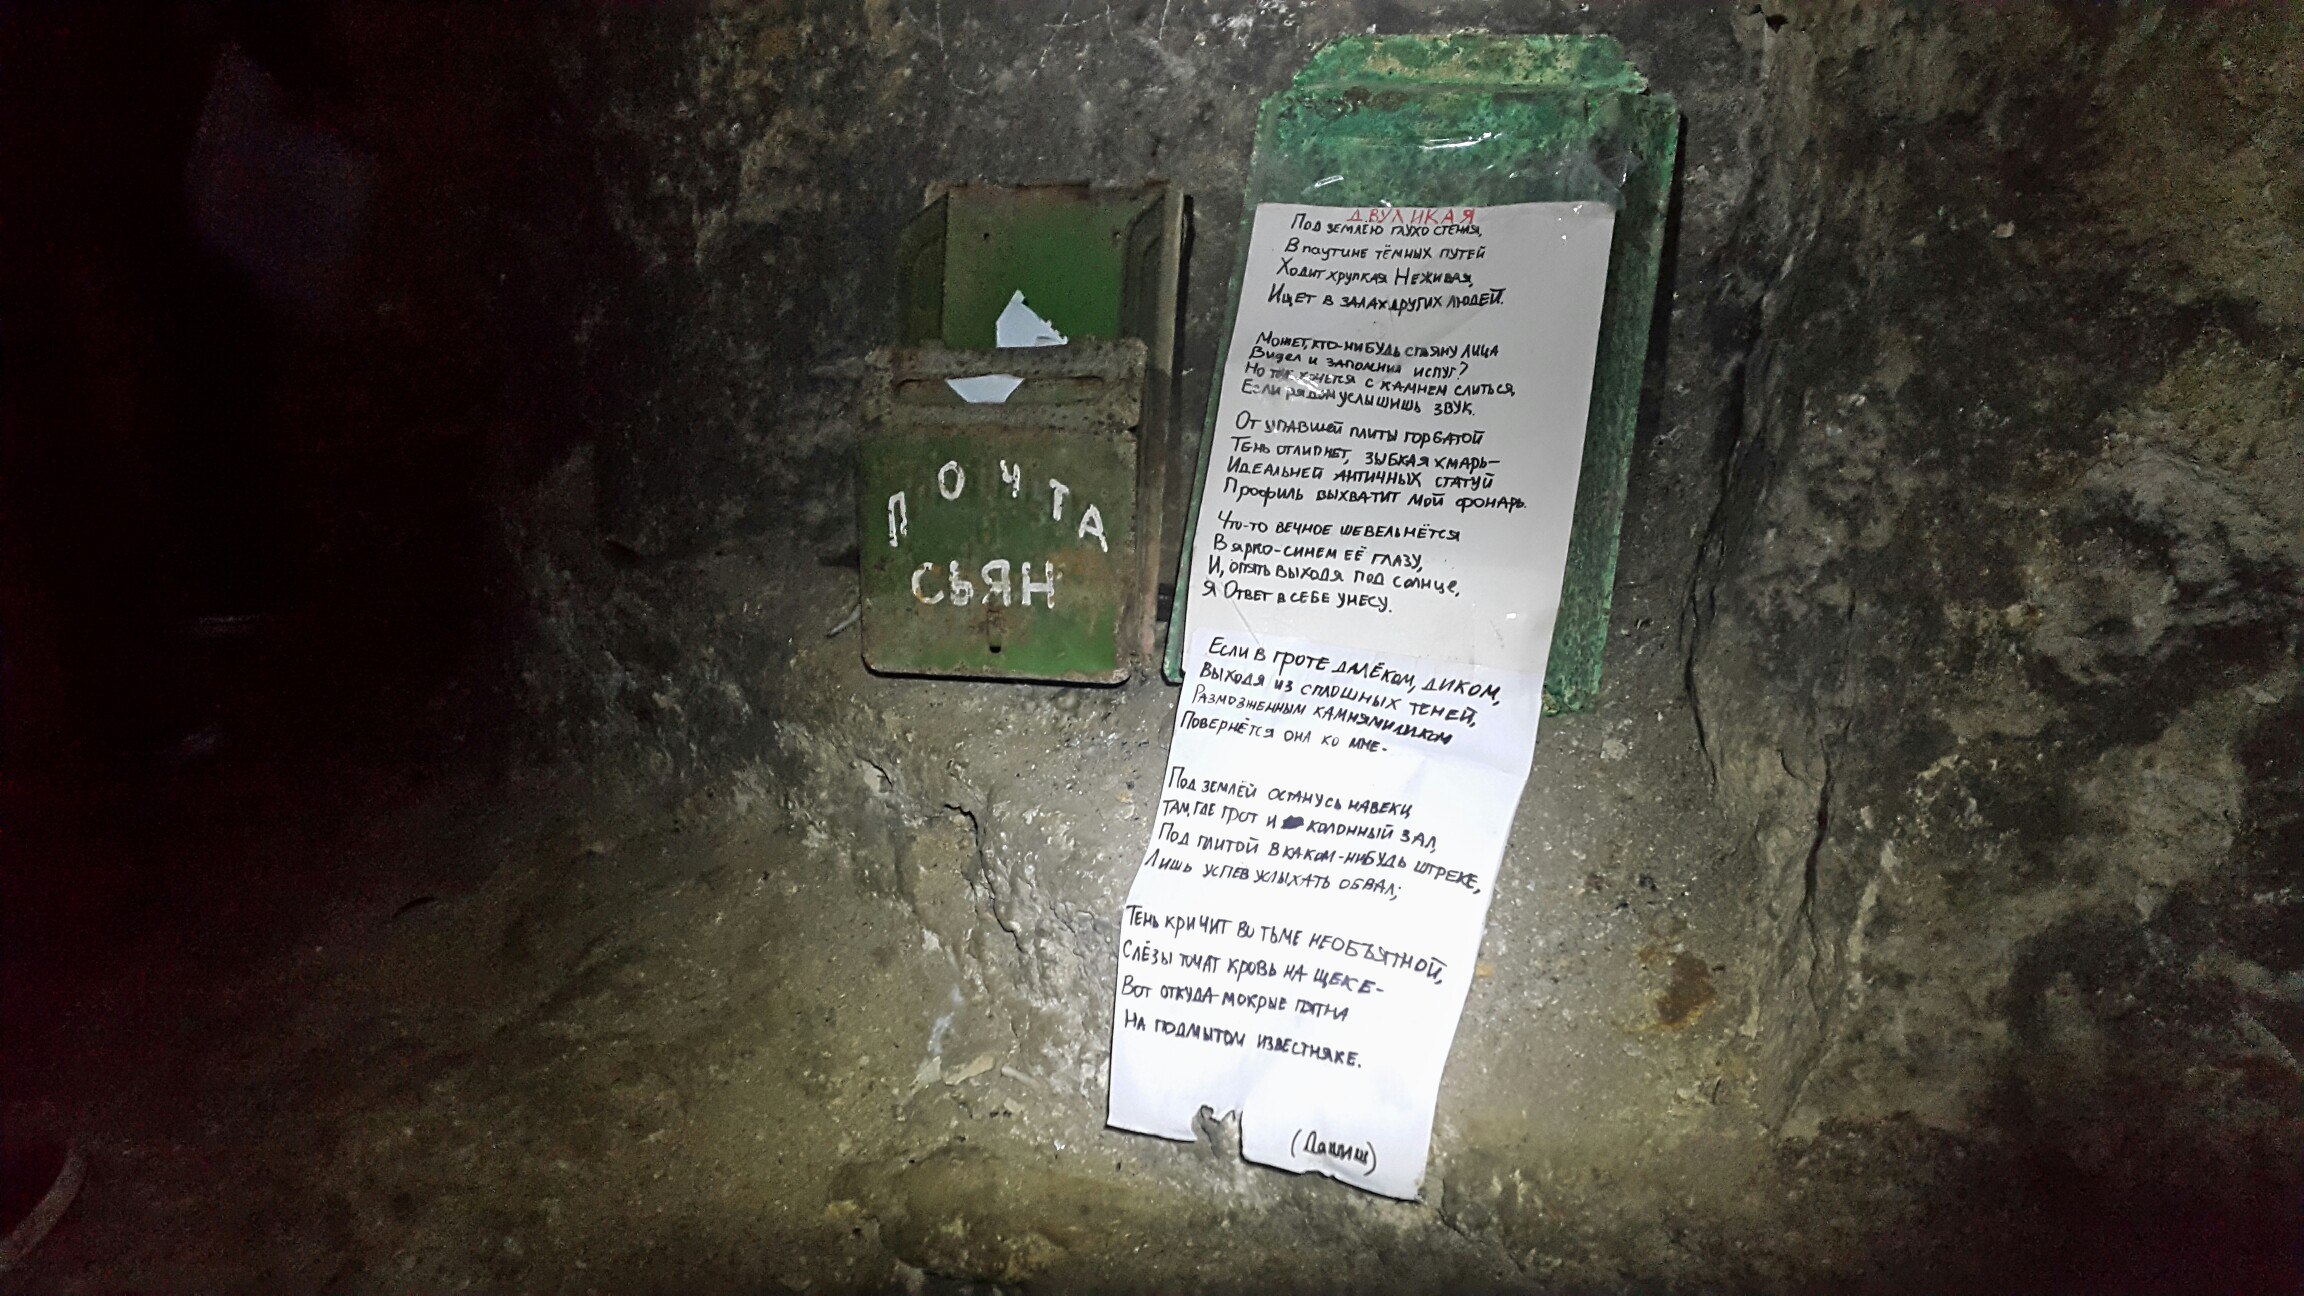 ПОЧТА
СЬЯН
ДВУЛИКАЯ
Под землёю глухо стеная,
В паутине тёмных путей
Ходит хрупкая Неживая,
Ищет в залах других людей.
Может, кто-нибудь спьяну лица
Видел и запомнил испуг?
Но так хочется с камнем слиться,
Если рядом услышишь звук.
От упавшей плиты горбатой
Тень отлипнет, зыбкая хмарь–
Идеальней античных статуй
Профиль выхватит мой фонарь.
Что-то вечное шевельнётся
В ярко-синем её глазу,
И, опять выходя под солнце,
Я Ответ в себе унесу.
Если в гроте далёком, диком,
Выходя из сплошных теней,
Размозженным камнями ликом
Повернётся она ко мне-
Под землёй останусь навеки
Там, где грот и колонный зал,
Под плитой в каком-нибудь штреке,
Лишь успев услыхать обвал;
Тень кричит во тьме необъятной,
Слёзы точат кровь на щеке-
Вот откуда мокрые пятна
На подмытом известняке.